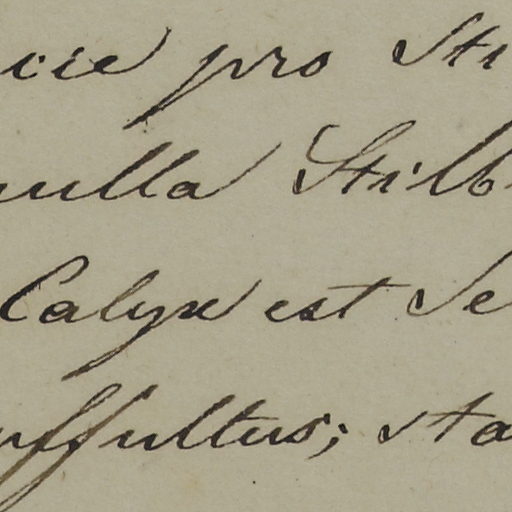 cie pro Sti
nulla Stilb
Calyx est Se
uffultus; sta